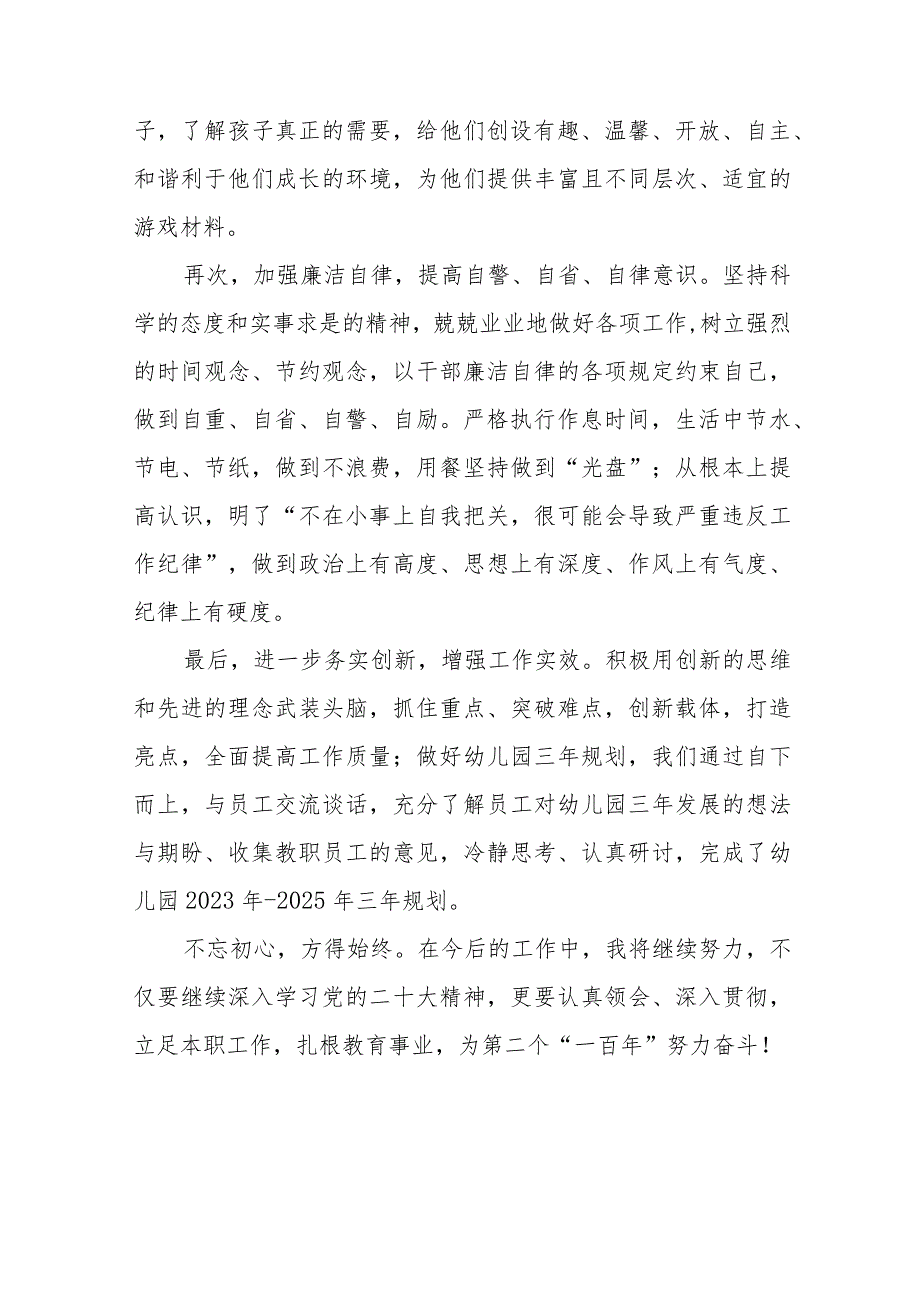 子，了解孩子真正的需要，给他们创设有趣、温馨、开放、自主、
和谐利于他们成长的环境，为他们提供丰富且不同层次、适宜的
游戏材料。
再次，加强廉洁自律，提高自警、自省、自律意识。坚持科
学的态度和实事求是的精神，兢兢业业地做好各项工作,树立强烈
的时间观念、节约观念，以干部廉洁自律的各项规定约束自己，
做到自重、自省、自警、自励。严格执行作息时间，生活中节水、
节电、节纸，做到不浪费，用餐坚持做到“光盘”；从根本上提
高认识，明了“不在小事上自我把关，很可能会导致严重违反工
作纪律”，做到政治上有高度、思想上有深度、作风上有气度、
纪律上有硬度。
最后，进一步务实创新，增强工作实效。积极用创新的思维
和先进的理念武装头脑，抓住重点、突破难点，创新载体，打造
亮点，全面提高工作质量；做好幼儿园三年规划，我们通过自下
而上，与员工交流谈话，充分了解员工对幼儿园三年发展的想法
与期盼、收集教职员工的意见，冷静思考、认真研讨，完成了幼
儿园 2023 年-2025 年三年规划。
不忘初心，方得始终。在今后的工作中，我将继续努力，不
仅要继续深入学习党的二十大精神，更要认真领会、深入贯彻，
立足本职工作，扎根教育事业，为第二个“一百年”努力奋斗！